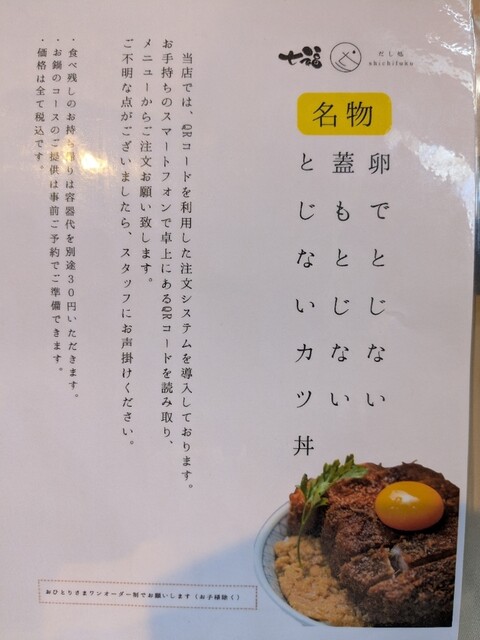 七福
だし処
shichifuku
名物
卵でとじない
蓋もとじない
とじないカツ丼
当店では、QRコードを利用した注文システムを導入しております。
お手持ちのスマートフォンで卓上にあるQRコードを読み取り、
メニューからご注文お願い致します。
ご不明な点がございましたら、スタッフにお声掛けください。
・食べ残しのお持ち帰りは容器代を別途30円いただきます。
・お鍋のコースのご提供は事前ご予約でご準備できます。
・価格は全て税込です。
おひとりさまワンオーダー制でお願いします（お子様除く）